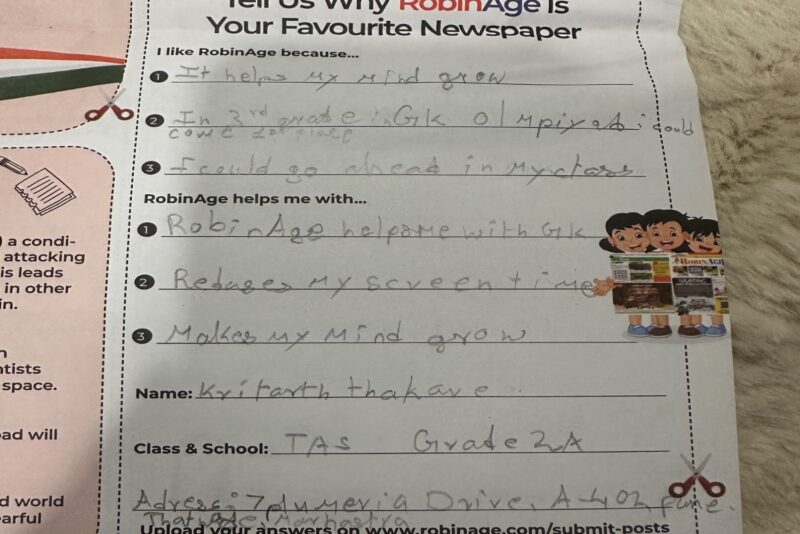 Tell Us Why RobinAge Is
Your Favourite Newspaper
I like RobinAge because...
1 It helps my mind grow
2 In 3rd grade in GK Olmpiyad i could
come
3 I could go ahead in my class
RobinAge helps me with...
1 RobinAge helps me with GK
2 Reduses my screen time
3 Makes my mind grow
Name: Kritarth thakare
Class & School: TAS Grade 2A
Adress: 7 plumeria Drive, A-402
Upload your answers on www.robinage.com/submit-posts
) a condi-
attacking
is leads
in other
in.
n
ntists
space.
ad will
d world
earful
ROBINAGE